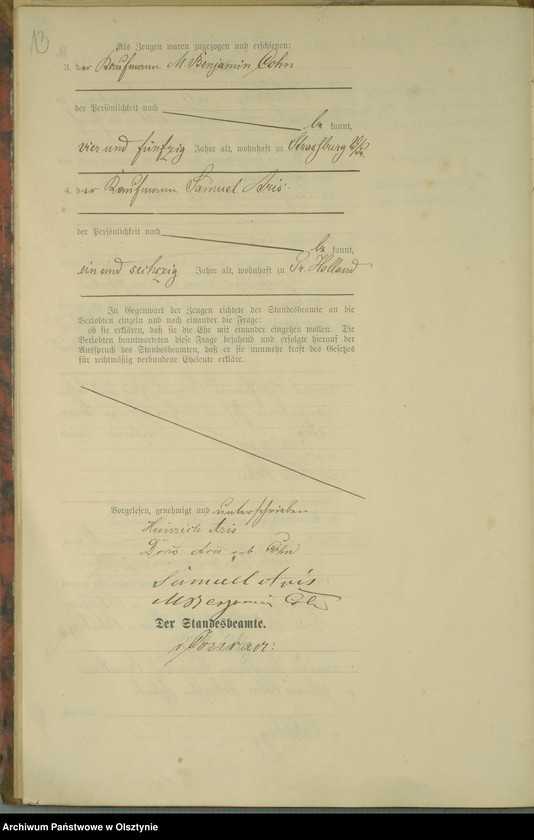 13
Als Zeugen waren zugezogen und erschienen:
3. der Kaufmann M. Benjamin Cohn
der Persönlichkeit nach
be kannt,
vier und fünfzig Jahre alt, wohnhaft zu Strasburg
4. der Kaufmann Samuel Aris.
der Persönlichkeit nach
be kannt,
ein und sechszig Jahre alt, wohnhaft zu Pr. Holland
In Gegenwart der Zeugen richtete der Standesbeamte an die
Verlobten einzeln und nach einander die Frage:
ob sie erklären, daß sie die Ehe mit einander eingehen wollen. Die
Verlobten beantworteten diese Frage bejahend und erfolgte hierauf der
Ausspruch des Standesbeamten, daß er sie nunmehr kraft des Gesetzes
für rechtmäßig verbundene Eheleute erkläre.
Vorgelesen, genehmigt und unterschrieben
Heinrich Aris
Doris Aris geb Cohn
Samuel Aris
M Benjamin Cohn
Der Standesbeamte.
Archiwum Państwowe w Olsztynie